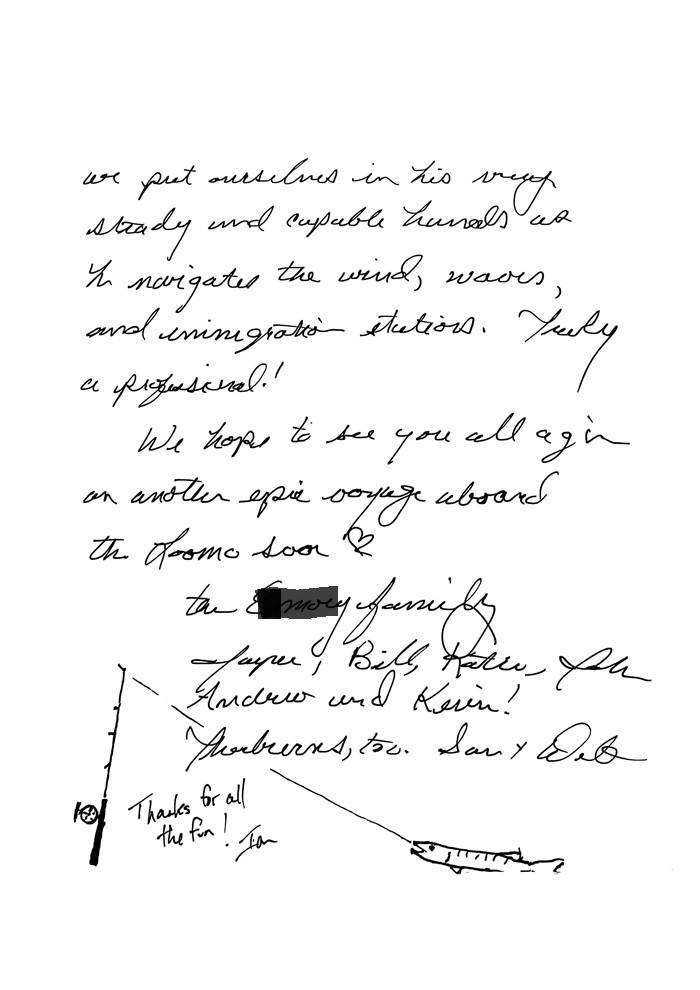 we put ourselves in his very
steady and capable hands as
he navigates the wind, waves,
and immigration stations. Truly
a professional!
We hope to see you all agin
on another epic voyage aboard
the soon ♡
the family
Bill, Katie,
Andrew and Kevin!
too.
Thanks for all
the fun! Ian